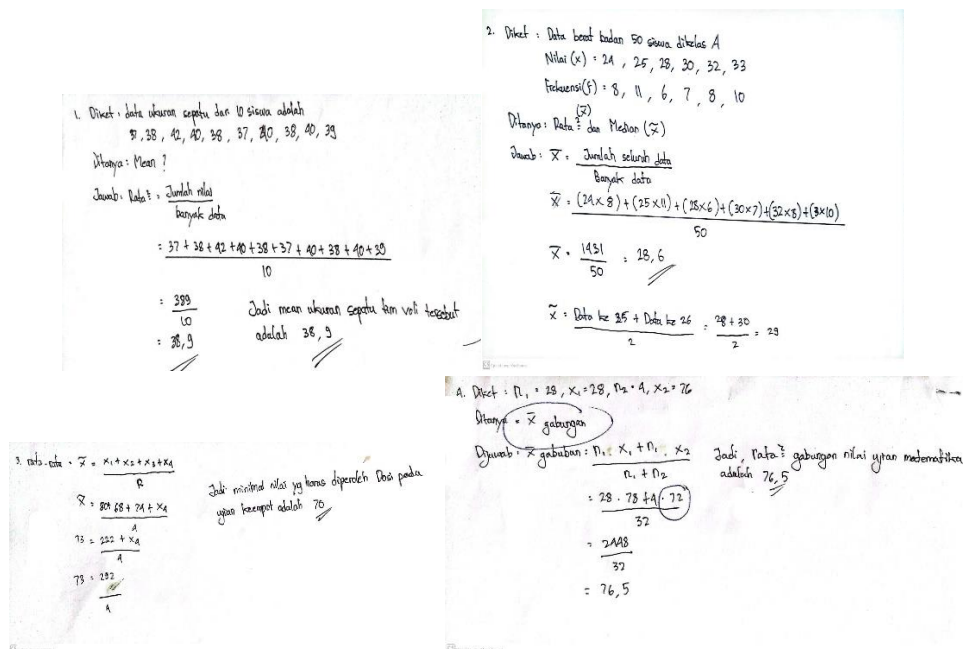 1. Diket : data ukuran sepatu dari 10 siswa adalah
37, 38, 42, 40, 38, 37, 40, 38, 40, 39
Ditanya : Mean ?
Jawab : Rata² = Jumlah nilai
banyak data
= 37 + 38 + 42 + 40 + 38 + 37 + 40 + 38 + 40 + 39
10
= 389
10
= 38,9
Jadi mean ukuran sepatu tim voli tersebut
adalah 38,9
2. Diket : Data berat badan 50 siswa dikelas A
Nilai (x) = 24 , 25, 28, 30, 32, 33
Frekuensi (f) = 8, 11, 6, 7, 8, 10
(x̄)
Ditanya : Rata² dan Median (x̃)
Jawab : x̄ = Jumlah seluruh data
Banyak data
x̄ = (24 x 8) + (25 x 11) + (28 x 6) + (30 x 7) + (32 x 8) + (3 x 10)
50
x̄ = 1431 = 28,6
50
x̃ = Data ke 25 + Data ke 26 = 28 + 30 = 29
2 2
3. rata-rata = x̄ = x₁ + x₂ + x₃ + x₄
n
x̄ = 80 + 68 + 74 + x₄
4
73 = 222 + x₄
4
73 = 292
4
Jadi minimal nilai yg harus diperoleh Dosi pada
ujian keempat adalah 70
4. Diket : n₁ = 28, x₁ = 28, n₂ = 4, x₂ = 76
Ditanya = x̄ gabungan
Dijawab = x̄ gabuban : n₁ . x₁ + n₁ . x₂
n₁ + n₂
= 28 . 78 + 4 . 72
32
= 2448
32
= 76,5
Jadi, rata² gabungan nilai ujian matematika
adalah 76,5